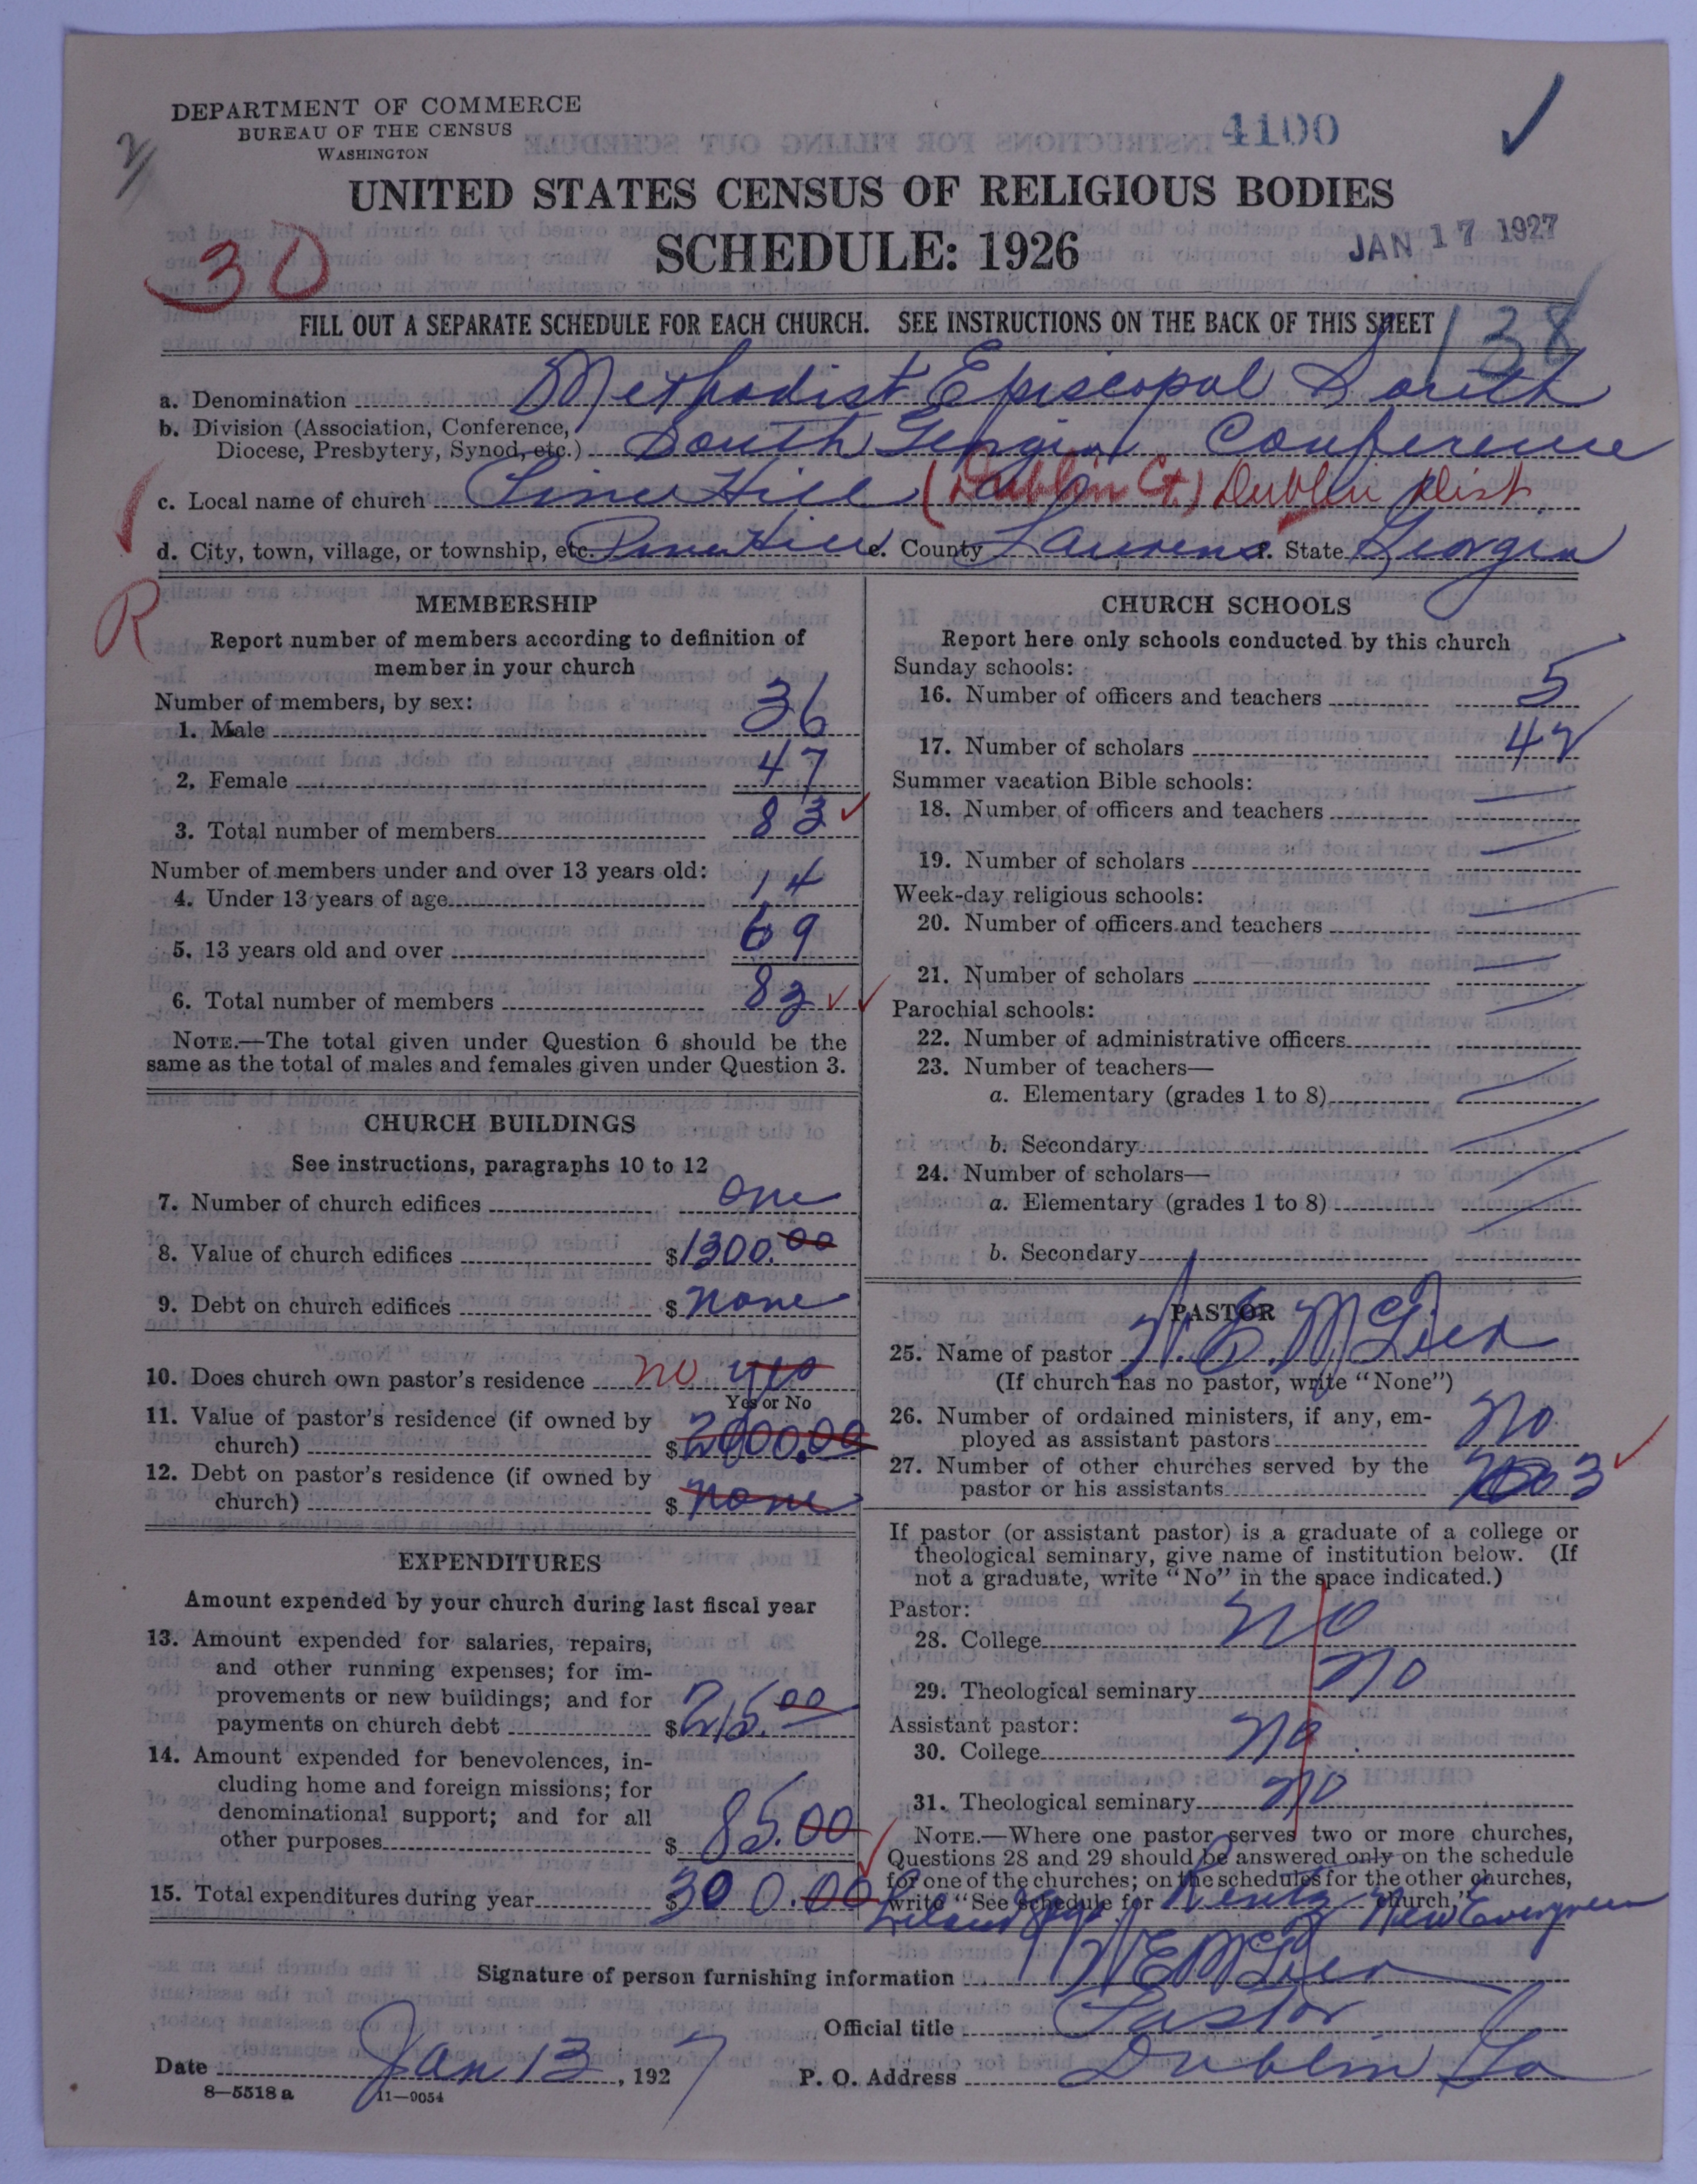 DEPARTMENT OF COMMERCE
BUREAU OF THE CENSUS
WASHINGTON
4100
UNITED STATES CENSUS OF RELIGIOUS BODIES
SCHEDULE: 1926
JAN 17 1927
30
FILL OUT A SEPARATE SCHEDULE FOR EACH CHURCH. SEE INSTRUCTIONS ON THE BACK OF THIS SHEET
138
a. Denomination Methodist Episcopal South
b. Division (Association, Conference, Diocese, Presbytery, Synod, etc.) South Georgia Conference
c. Local name of church Pine Hill (Dublin Ct.) Dublin Dist
d. City, town, village, or township, etc. Pine Hill e. County Laurens f. State Georgia
R
MEMBERSHIP
Report number of members according to definition of
member in your church
Number of members, by sex:
1. Male 36
2. Female 47
3. Total number of members 83
Number of members under and over 13 years old:
4. Under 13 years of age 14
5. 13 years old and over 69
6. Total number of members 83
NOTE.—The total given under Question 6 should be the
same as the total of males and females given under Question 3.
CHURCH BUILDINGS
See instructions, paragraphs 10 to 12
7. Number of church edifices one
8. Value of church edifices $1300.00
9. Debt on church edifices $ none
10. Does church own pastor's residence no yes
Yes or No
11. Value of pastor's residence (if owned by
church) $2000.00
12. Debt on pastor's residence (if owned by
church) $ none
EXPENDITURES
Amount expended by your church during last fiscal year
13. Amount expended for salaries, repairs,
and other running expenses; for im-
provements or new buildings; and for
payments on church debt $215.00
14. Amount expended for benevolences, in-
cluding home and foreign missions; for
denominational support; and for all
other purposes $ 85.00
15. Total expenditures during year $300.00
CHURCH SCHOOLS
Report here only schools conducted by this church
Sunday schools:
16. Number of officers and teachers 5
17. Number of scholars 42
Summer vacation Bible schools:
18. Number of officers and teachers
19. Number of scholars
Week-day religious schools:
20. Number of officers and teachers
21. Number of scholars
Parochial schools:
22. Number of administrative officers
23. Number of teachers—
a. Elementary (grades 1 to 8)
b. Secondary
24. Number of scholars—
a. Elementary (grades 1 to 8)
b. Secondary
PASTOR
25. Name of pastor
(If church has no pastor, write "None")
26. Number of ordained ministers, if any, em-
ployed as assistant pastors no
27. Number of other churches served by the
pastor or his assistants 3
If pastor (or assistant pastor) is a graduate of a college or
theological seminary, give name of institution below. (If
not a graduate, write "No" in the space indicated.)
Pastor:
28. College no
29. Theological seminary no
Assistant pastor:
30. College no
31. Theological seminary no
NOTE.—Where one pastor serves two or more churches,
Questions 28 and 29 should be answered only on the schedule
for one of the churches; on the schedules for the other churches,
write "See schedule for Rentz church."
New Evergreen
Signature of person furnishing information
Official title Pastor
Date Jan 13, 1927 P. O. Address Dublin Ga
8—5518 a 11—9054